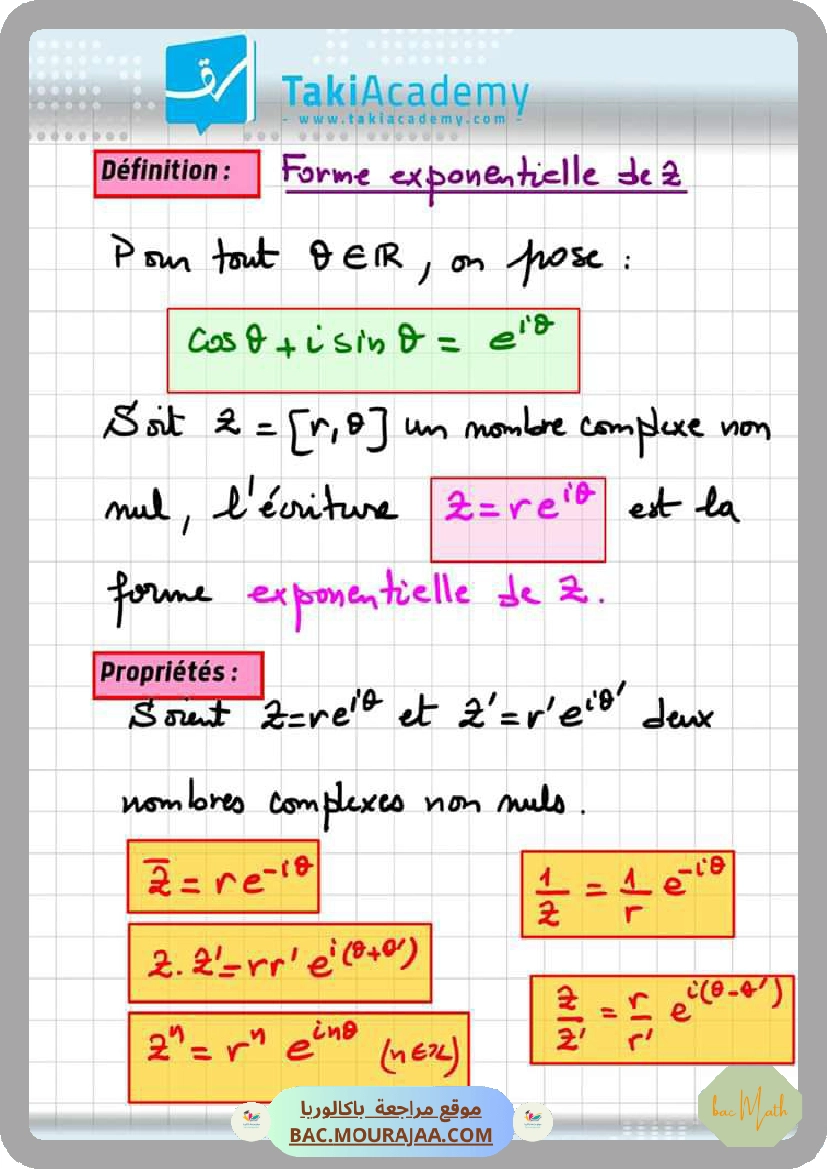 TakiAcademy
- www.takiacademy.com -
Définition : Forme exponentielle de z
Pour tout θ ∈ ℝ, on pose :
cos θ + i sin θ = e^{iθ}
Soit z = [r, θ] un nombre complexe non
nul, l'écriture z = r e^{iθ} est la
forme exponentielle de z.
Propriétés :
Soient z = re^{iθ} et z' = r'e^{iθ'} deux
nombres complexes non nuls.
z̅ = r e^{-iθ}
1/z = 1/r e^{-iθ}
z . z' = rr' e^{i(θ+θ')}
z/z' = r/r' e^{i(θ-θ')}
z^n = r^n e^{inθ} (n ∈ ℤ)
موقع مراجعة باكالوريا
BAC.MOURAJAA.COM
bac Math